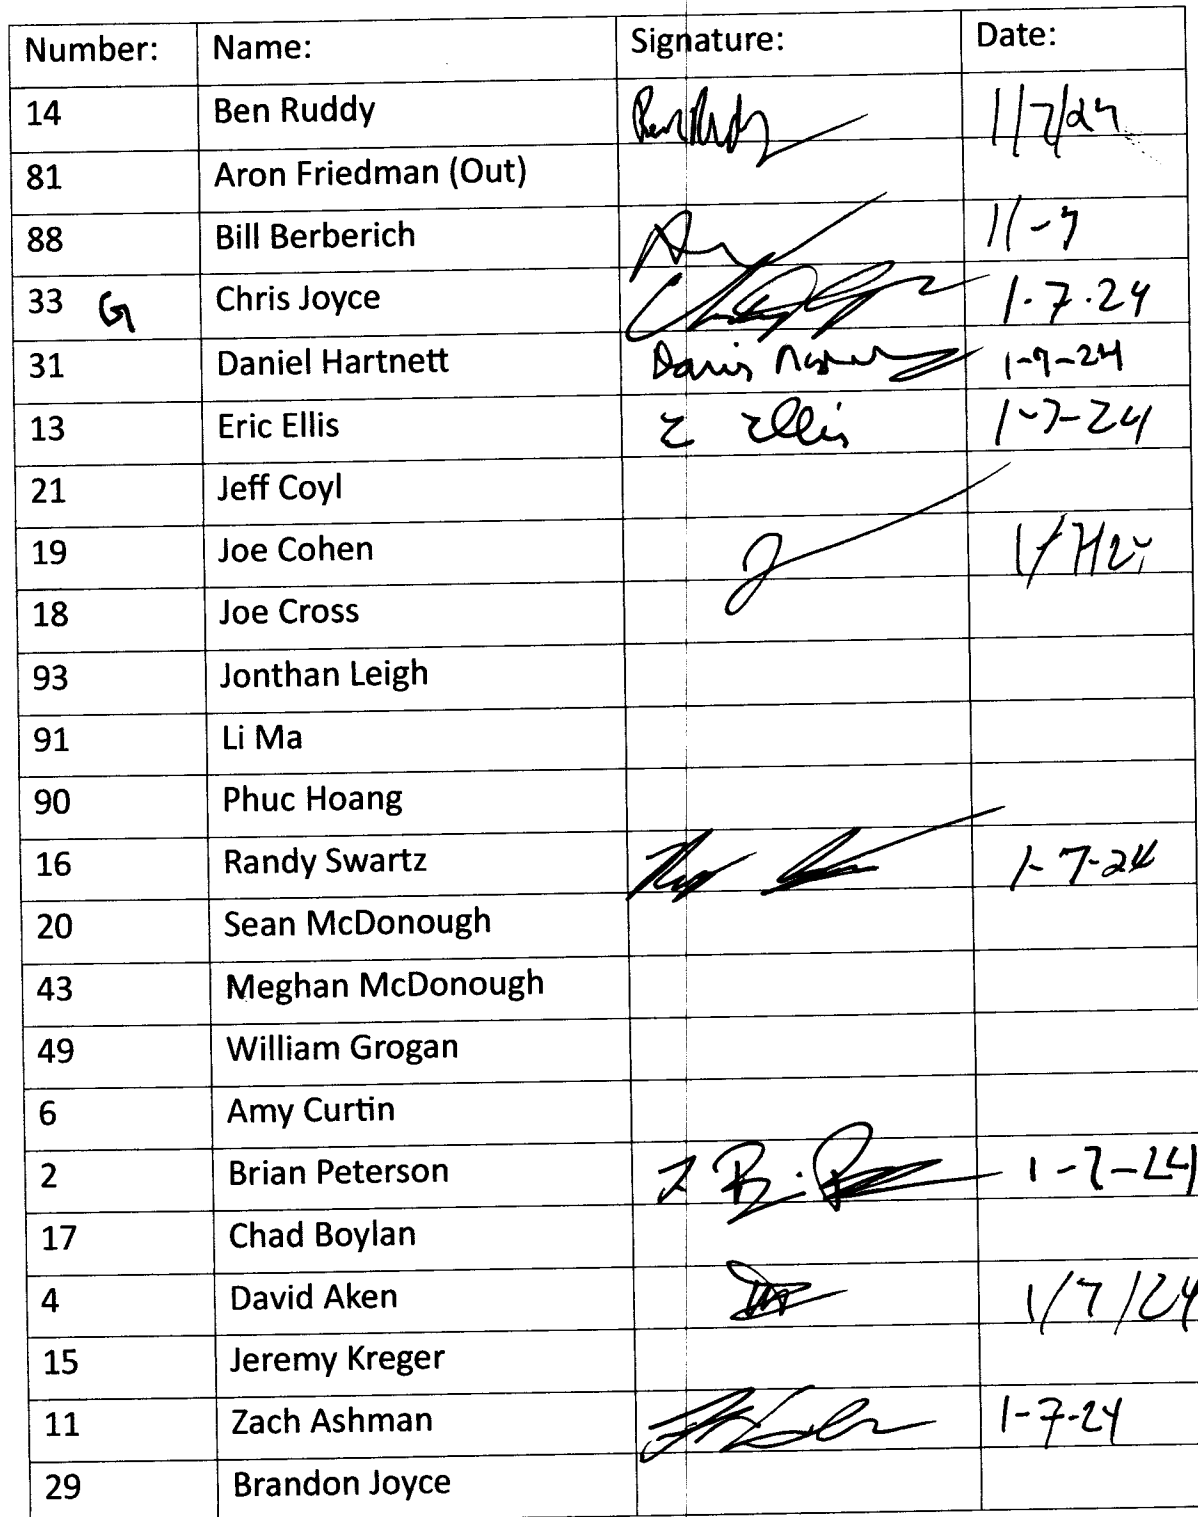 Number: Name: Signature: Date:
14 Ben Ruddy Ben Ruddy 1/7/24
81 Aron Friedman (Out)
88 Bill Berberich
33 G Chris Joyce 1.7.24
31 Daniel Hartnett 1-7-24
13 Eric Ellis E Ellis 1-7-24
21 Jeff Coyl
19 Joe Cohen
18 Joe Cross
93 Jonthan Leigh
91 Li Ma
90 Phuc Hoang
16 Randy Swartz 1-7-24
20 Sean McDonough
43 Meghan McDonough
49 William Grogan
6 Amy Curtin
2 Brian Peterson 1-7-24
17 Chad Boylan
4 David Aken 1/7/24
15 Jeremy Kreger
11 Zach Ashman 1-7-24
29 Brandon Joyce